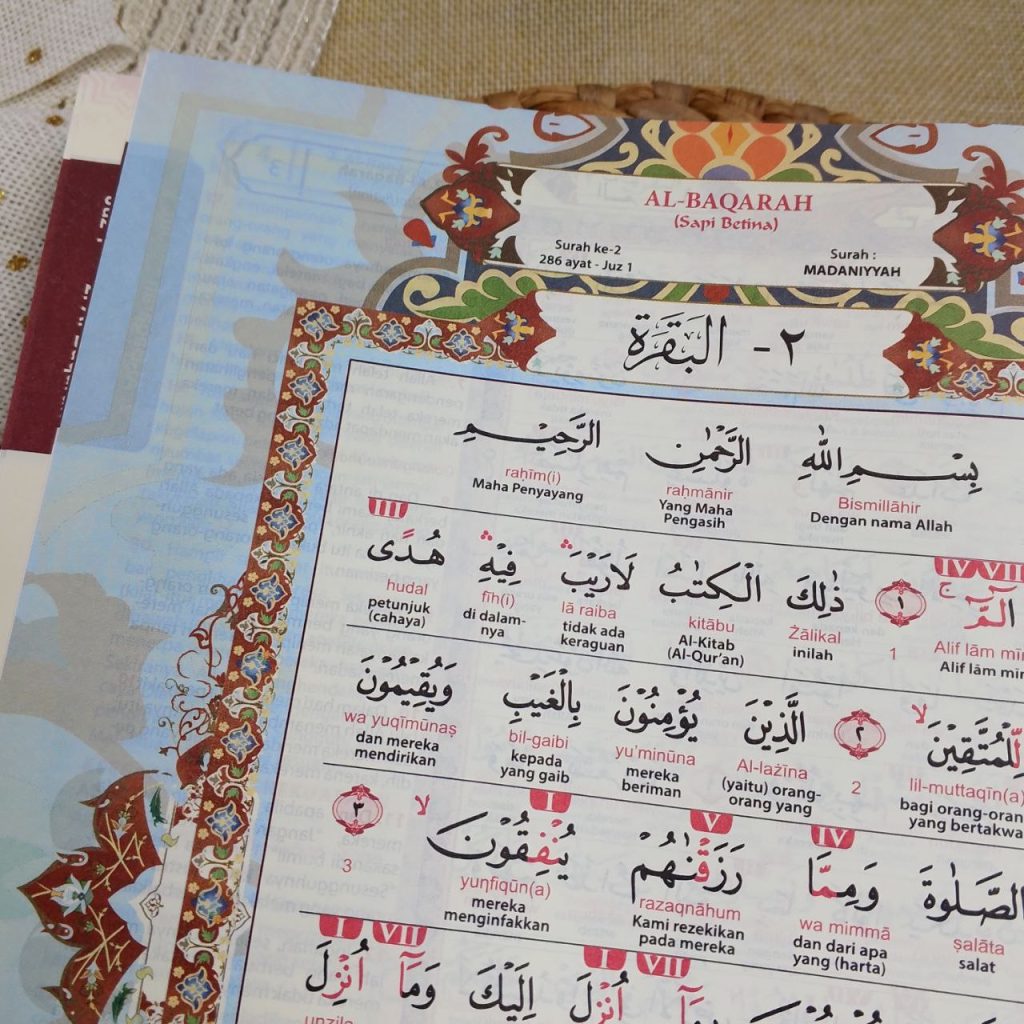 AL-BAQARAH
(Sapi Betina)
Surah ke-2
286 ayat - Juz 1
Surah :
MADANIYYAH
٢- البقرة
بِسْــمِ اللّٰهِ الرَّحْمٰنِ الرَّحِيْـمِ
Bismillāhir raḥmānir raḥīm(i)
Dengan nama Allah Yang Maha Pengasih Maha Penyayang
IV VII III
الۤمّۤ ۚ ١ ذٰلِكَ الْكِتٰبُ لَا رَيْبَ ۛ فِيْهِ ۛ هُدًى
Alif lām 1 Żālikal kitābu lā raiba fīh(i) hudal
Alif lām inilah Al-Kitab (Al-Qur’an) tidak ada keraguan di dalam-nya petunjuk (cahaya)
لِّلْمُتَّقِيْنَ ۙ ٢ الَّذِيْنَ يُؤْمِنُوْنَ بِالْغَيْبِ وَيُقِيْمُوْنَ
lil-muttaqīn(a) 2 Al-lażīna yu’minūna bil-gaibi wa yuqīmūnaṣ
bagi orang-oran yang bertakwa (yaitu) orang-orang yang mereka beriman kepada yang gaib dan mereka mendirikan
IV V I
الصَّلٰوةَ وَمِمَّا رَزَقْنٰهُمْ يُنْفِقُوْنَ ۙ ٣
ṣalāta wa mimmā razaqnāhum yuηfiqūn(a) 3
salat dan dari apa yang (harta) Kami rezekikan pada mereka mereka menginfakkan
VII I VII I
اُنْزِلَ اِلَيْكَ وَمَآ اُنْزِلَ